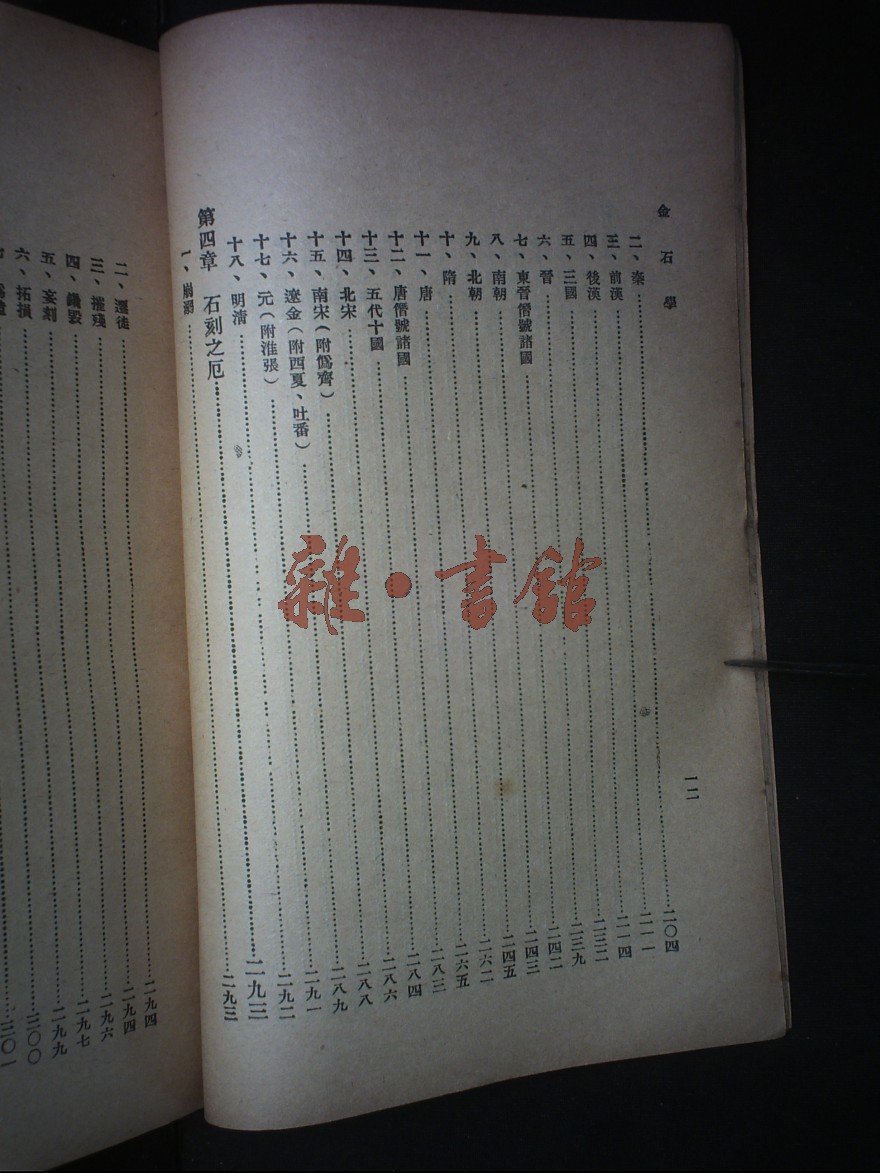 金石學
一二
二、秦……二〇四
三、前漢……二一一
四、後漢……二一四
五、三國……二三二
六、晉……二三九
七、東晉僭號諸國……二四二
八、南朝……二四三
九、北朝……二四五
十、隋……二六二
十一、唐……二六五
十二、唐僭號諸國……二八三
十三、五代十國……二八四
十四、北宋……二八六
十五、南宋(附僞齊)……二八八
十六、遼金(附西夏、吐番)……二八九
十七、元(附淮張)……二九一
十八、明清……二九二
第四章 石刻之厄……二九三
一、崩溺……二九三
二、遷徙……二九四
三、摧殘……二九四
四、鑱毀……二九六
五、妄刻……二九七
六、拓損……二九九
三〇〇
三〇一
雜·書館